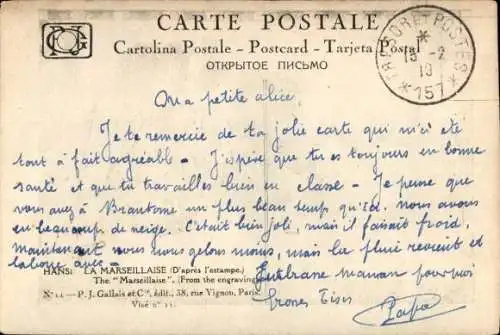 CARTE POSTALE
Cartolina Postale – Postcard – Tarjeta Postal
ОТКРЫТОЕ ПИСЬМО
TRESOR ET POSTES
15-2
19
* 157 *
Ma petite alice,
Je te remercie de ta jolie carte qui m'a été
tout à fait agréable – J'espère que tu es toujours en bonne
santé et que tu travailles bien en classe – Je pense que
vous avez à Brantome un plus beau temps qu'ici. nous avons
eu beaucoup de neige. C'était bien joli, mais il faisait froid,
maintenant nous nous gelons moins, mais la pluie revient et
la boue avec –
HANSI LA MARSEILLAISE (D'après l'estampe.)
The "Marseillaise". (From the engraving)
Embrasse maman pour
Nº 11 – P. J. Gallais et Cie, édit, 38, rue Vignon, Paris
Visé nº 11.
Papa